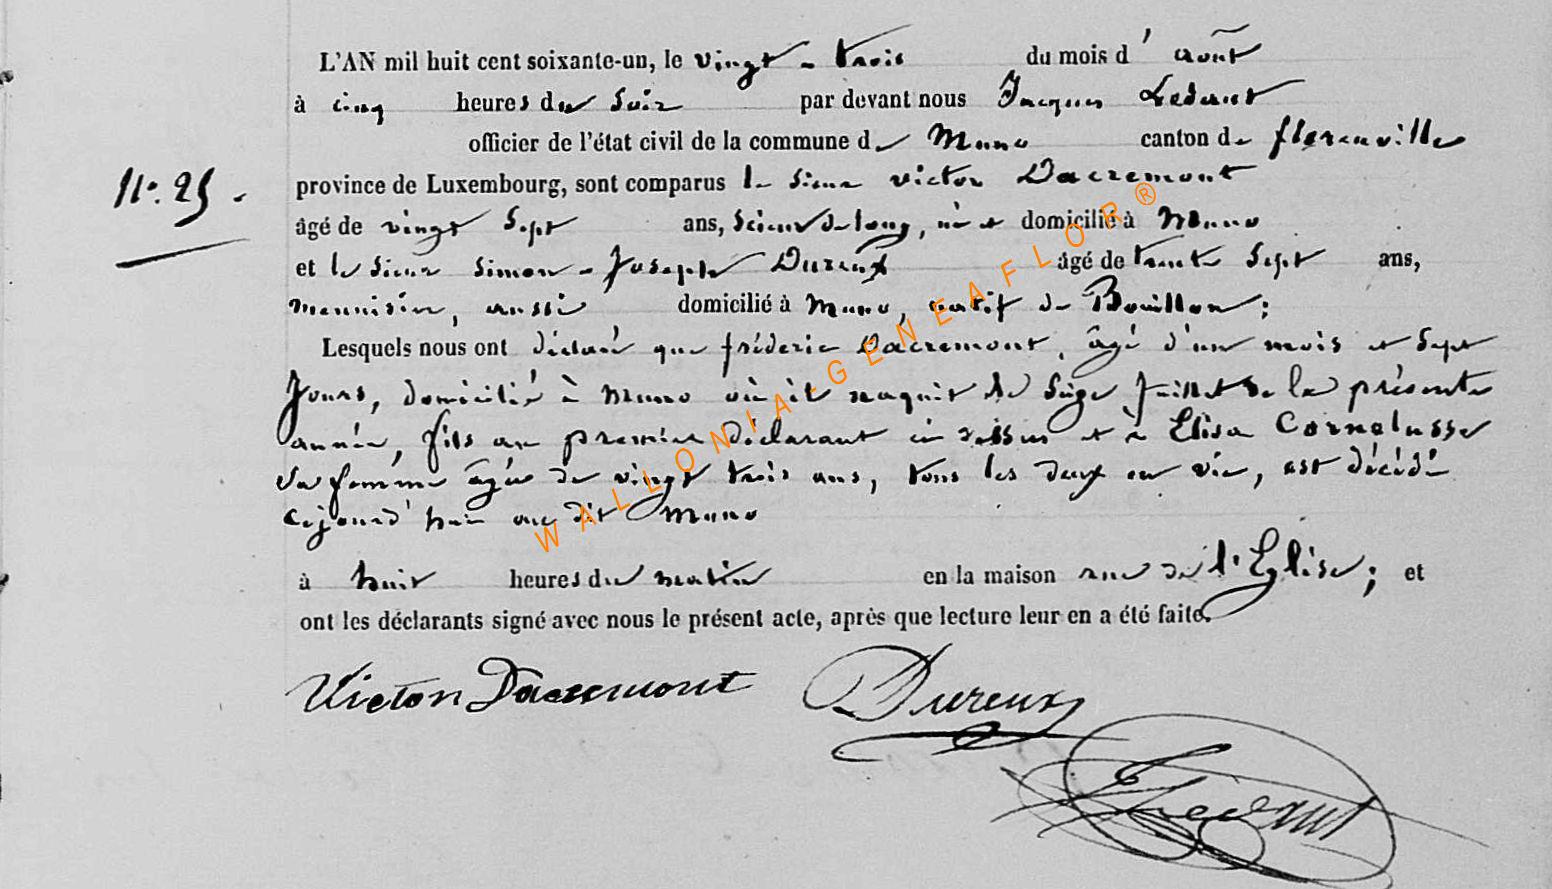 L'AN mil huit cent soixante-un, le vingt-trois du mois d'août
à cinq heures du soir par devant nous Jacques Ledant
officier de l'état civil de la commune de Muno canton de florenville
N° 25. province de Luxembourg, sont comparus le sieur victor Dacremont
âgé de vingt sept ans, scieur de long, né et domicilié à Muno
et le sieur simon-Joseph Dureux âgé de trente sept ans,
menuisier, aussi domicilié à Muno, natif de Bouillon;
Lesquels nous ont déclaré que fréderic Dacremont, âgé d'un mois et sept
Jours, domicilié à Muno où il naquit le seize Juillet de la présente
année, fils au premier déclarant ci dessus et à Elisa Cornelusse
sa femme âgée de vingt trois ans, tous les deux en vie, est décédé
cejourd'hui au dit Muno
à huit heures du matin en la maison rue de l'Eglise; et
ont les déclarants signé avec nous le présent acte, après que lecture leur en a été faite.
Victor Dacremont Dureux
Ledant
WALLONIA-GENEAFLOR®